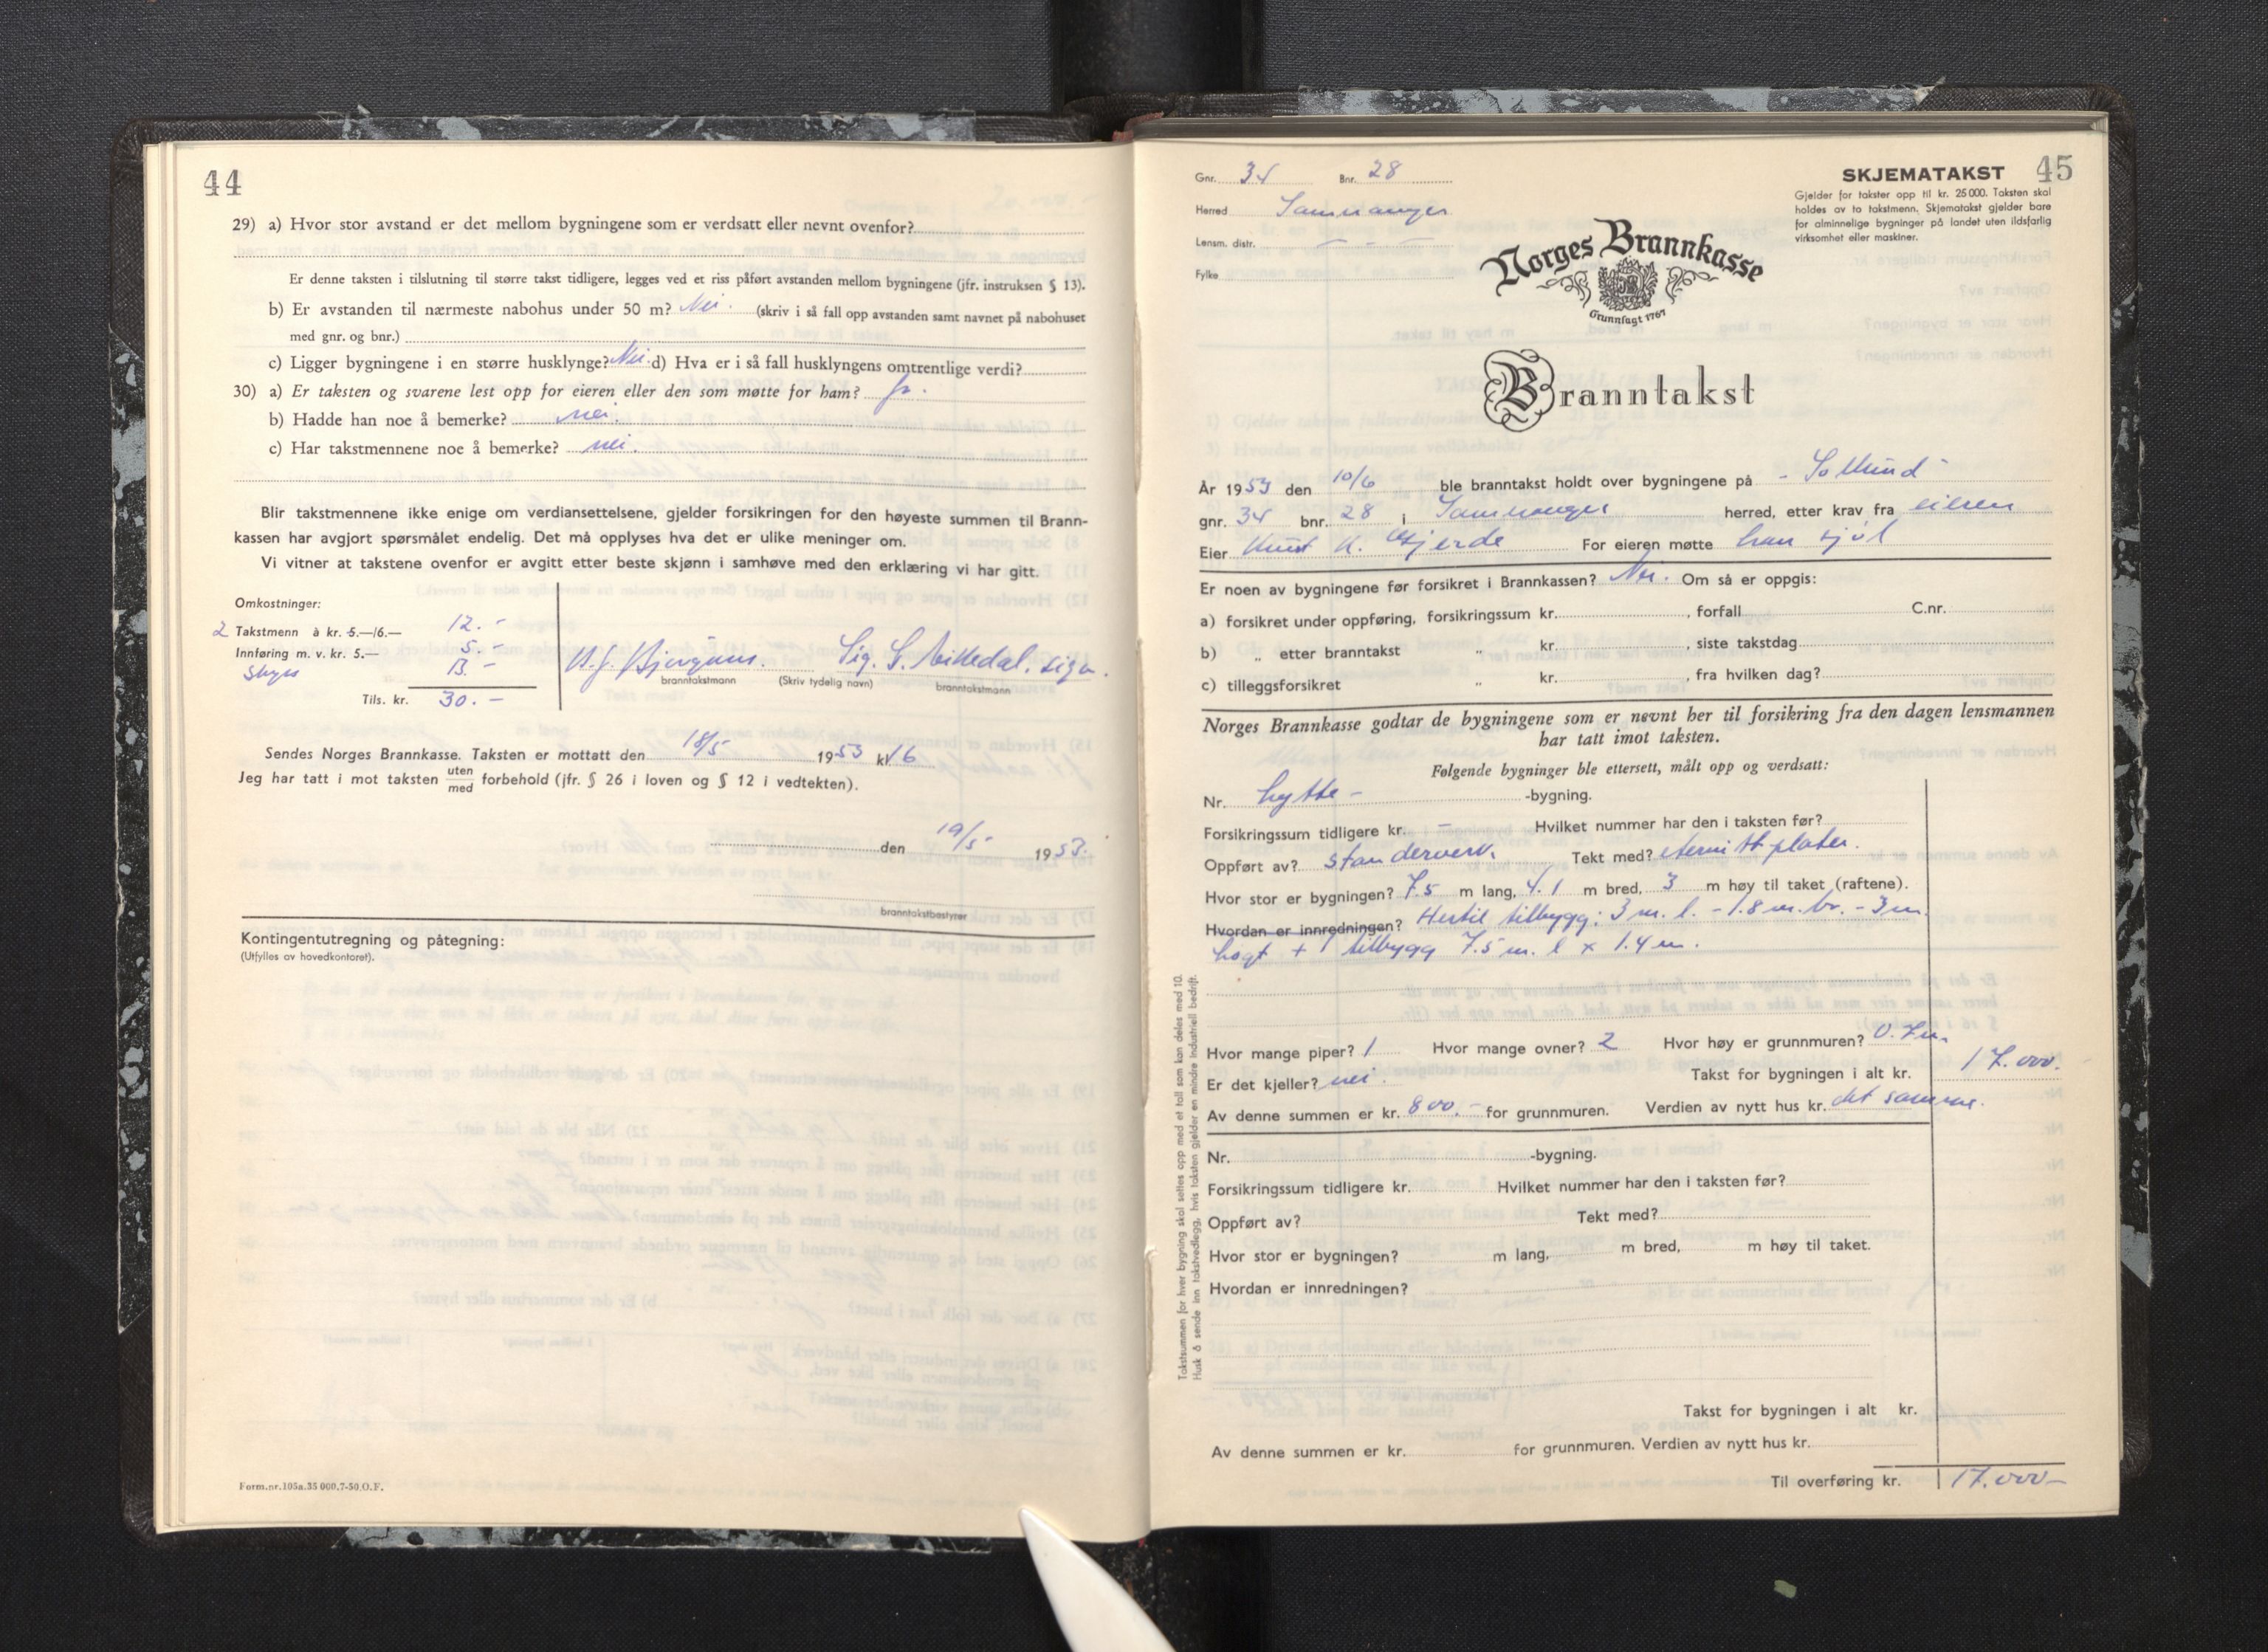 44
29) a) Hvor stor avstand er det mellom bygningene som er verdsatt eller nevnt ovenfor?
Er denne taksten i tilslutning til større takst tidligere, legges ved et riss påført avstanden mellom bygningene (jfr. instruksen § 13).
b) Er avstanden til nærmeste nabohus under 50 m? Nei. (skriv i så fall opp avstanden samt navnet på nabohuset
med gnr. og bnr.)
c) Ligger bygningene i en større husklynge? Nei. d) Hva er i så fall husklyngens omtrentlige verdi?
30) a) Er taksten og svarene lest opp for eieren eller den som møtte for ham? Ja.
b) Hadde han noe å bemerke? nei.
c) Har takstmennene noe å bemerke? nei.
Blir takstmennene ikke enige om verdiansettelsene, gjelder forsikringen for den høyeste summen til Brann-
kassen har avgjort spørsmålet endelig. Det må opplyses hva det er ulike meninger om.
Vi vitner at takstene ovenfor er avgitt etter beste skjønn i samhøve med den erklæring vi har gitt.
Omkostninger:
2 Takstmenn à kr. 5.—/6.— 12.-
Innføring m. v. kr. 5.— 5.-
Skyss 13.-
Tils. kr. 30.-
Sig. S. sign.
branntakstmann (Skriv tydelig navn) branntakstmann
Sendes Norges Brannkasse. Taksten er mottatt den 18/5 1953 kl. 16
Jeg har tatt i mot taksten uten/med forbehold (jfr. § 26 i loven og § 12 i vedtekten).
den 19/5 1953.
branntakstbestyrer
Kontingentutregning og påtegning:
(Utfylles av hovedkontoret).
Form.nr.105a.35 000.7-50.O.F.
45
SKJEMATAKST
Gjelder for takster opp til kr. 25 000. Taksten skal
holdes av to takstmenn. Skjematakst gjelder bare
for alminnelige bygninger på landet uten ildsfarlig
virksomhet eller maskiner.
Gnr. 34 Bnr. 28
Herred Samnanger
Lensm. distr. — - —
Fylke
Norges Brannkasse
Grunnlagt 1767
Branntakst
År 1953 den 10/6 ble branntakst holdt over bygningene på
gnr. 34 bnr. 28 i Samnanger herred, etter krav fra eieren
Eier Knut K. Gjerde For eieren møtte han sjøl
Er noen av bygningene før forsikret i Brannkassen? Nei. Om så er oppgis:
a) forsikret under oppføring, forsikringssum kr. , forfall C.nr.
b) „ etter branntakst „ kr. , siste takstdag
c) tilleggsforsikret „ kr. , fra hvilken dag?
Norges Brannkasse godtar de bygningene som er nevnt her til forsikring fra den dagen lensmannen
har tatt imot taksten.
Følgende bygninger ble ettersett, målt opp og verdsatt:
Nr. hytte - -bygning.
Forsikringssum tidligere kr. - Hvilket nummer har den i taksten før?
Oppført av? standerverk. Tekt med? eternittplater.
Hvor stor er bygningen? 7.5 m lang, 4.1 m bred, 3 m høy til taket (raftene).
Hvordan er innredningen? Hertil tilbygg: 3 m. l. - 1.8 m. br. - 3 m.
høgt + 1 tilbygg 7.5 m. l x 1.4 m.
Hvor mange piper? 1 Hvor mange ovner? 2 Hvor høy er grunnmuren? 0.7 m.
Er det kjeller? nei. Takst for bygningen i alt kr. 17.000.-
Av denne summen er kr. 800.- for grunnmuren. Verdien av nytt hus kr. det samme.
Nr. -bygning.
Forsikringssum tidligere kr. Hvilket nummer har den i taksten før?
Oppført av? Tekt med?
Hvor stor er bygningen? m lang, m bred, m høy til taket.
Hvordan er innredningen?
Takst for bygningen i alt kr.
Av denne summen er kr. for grunnmuren. Verdien av nytt hus kr.
Til overføring kr. 17.000-
Takstsummen for hver bygning skal settes opp med et tall som kan deles med 10.
Husk å sende inn takstvedlegg, hvis taksten gjelder en mindre industriell bedrift.